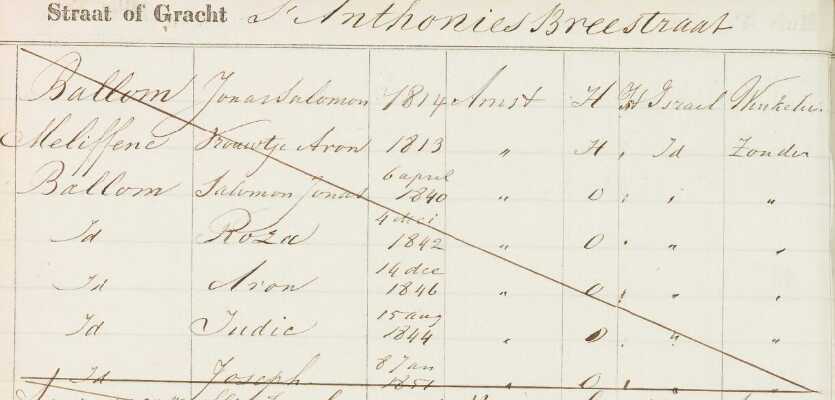 Straat of Gracht St Anthonies Breestraat
Ballom Jonas Salomon 1814 Amst H H Israel Winkelier
Meliffene Vrouwtje Aron 1813 " H , Id Zonder
6 april
Ballom Salomon Jonas 1840 " O " "
4 dec
Id Roza 1842 " O " "
14 dec
Id Aron 1846 " O " "
15 aug
Id Judic 1844 " O " "
8 Jan
Id Joseph 1851 " O " "